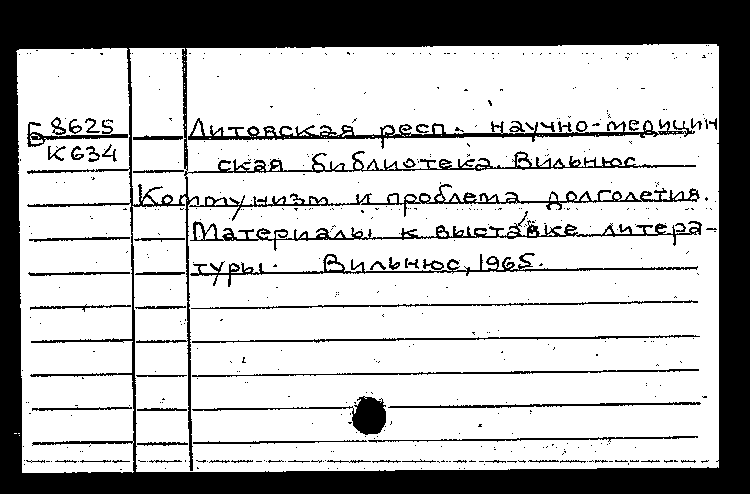 Б 8625
К634
Литовская респ. научно-медицин
ская библиотека. Вильнюс.
Коммунизм и проблема долголетия.
Материалы к выставке литера-
туры. Вильнюс, 1965.